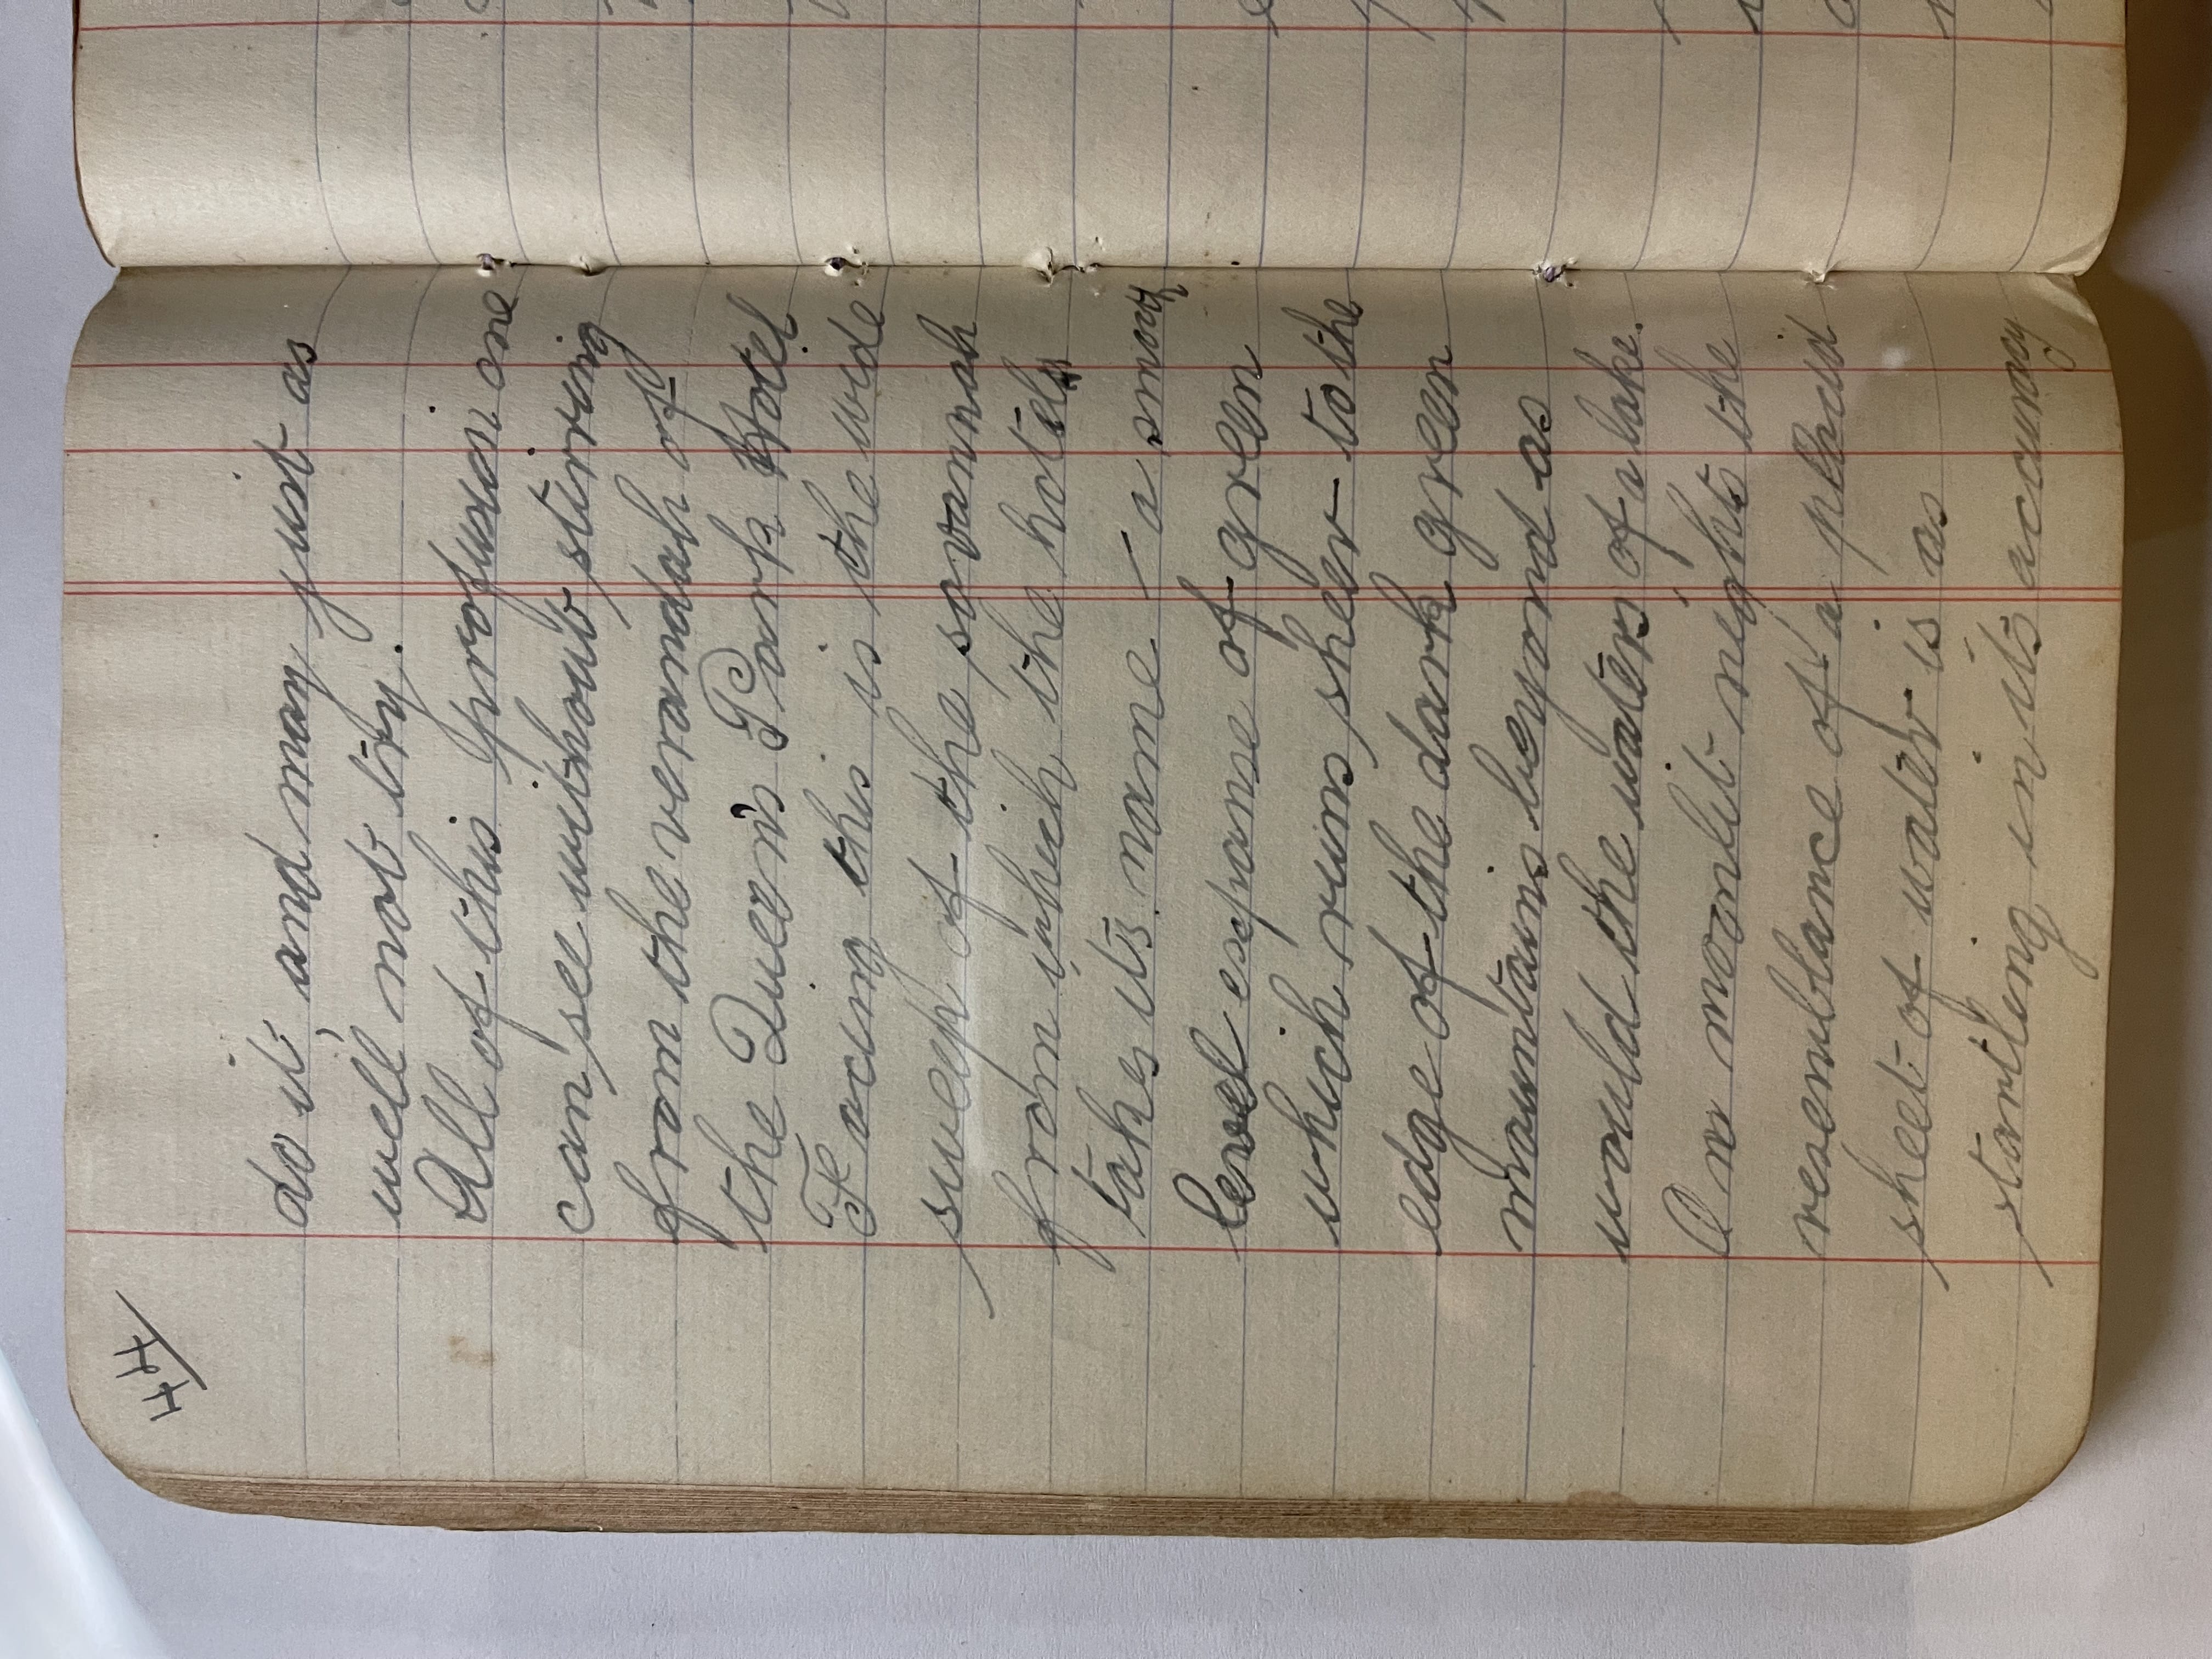 44/
do it, and may just as
well not try.
All of this profusion one
can see without stirring
from the verandah of
the Queen's Park Hotel
Facing this is the wide
sweep of the savannah
from which the hotel
takes its name – a smooth
level expanse of green
which runs sheer to the
edge of the dark green
mountains beyond as
would the waters of a lake.
On moonlit nights the
resemblance of a placid
sheet of water is as
startling in its accuracy